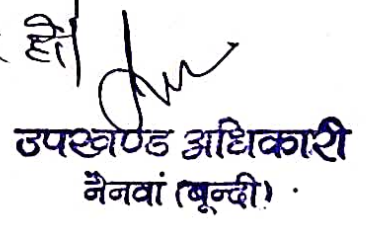 हो।
उपखण्ड अधिकारी
नैनवां (बून्दी) .